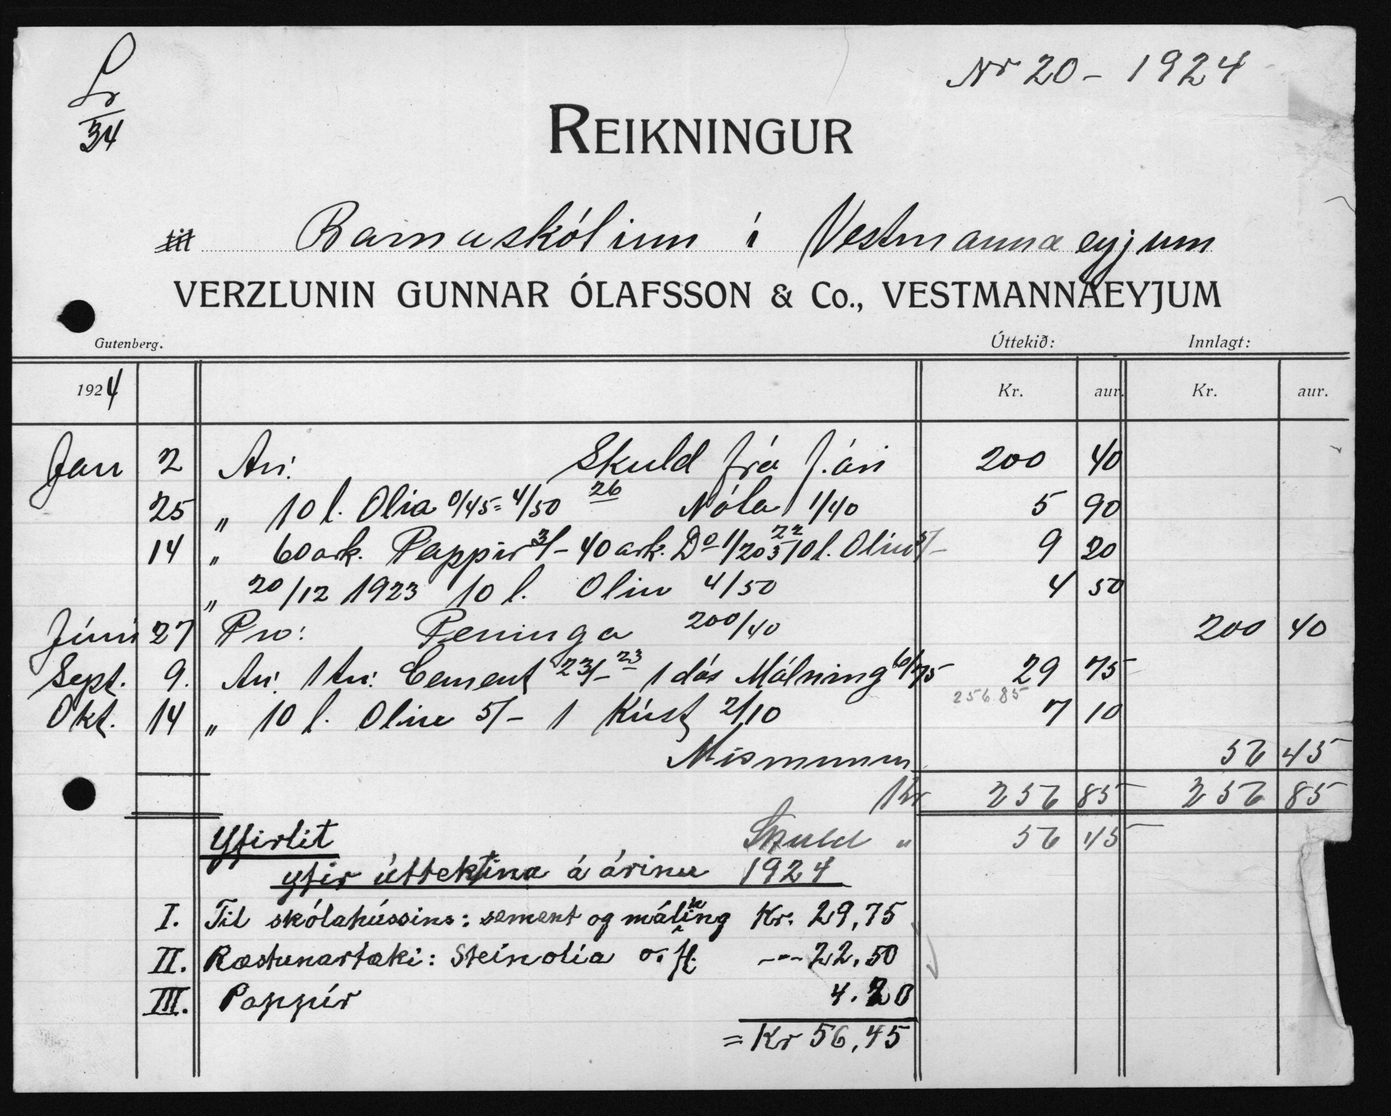 Nr 20 - 1924
Lr
34
REIKNINGUR
til Barnaskólinn í Vestmannaeyjum
VERZLUNIN GUNNAR ÓLAFSSON & Co., VESTMANNAEYJUM
Gutenberg. Úttekið: Innlagt:
1924 Kr. aur. Kr. aur.
Jan 2 An: Skuld frá f. ári 200 40
25 „ 10 l. Olia 0/45= 4/50 26 Nóla 1/40 5 90
14 „ 60 ark. Pappir 3/- 40 ark. Do 1/20 10 l. Olia 5/- 9 20
„ 20/12 1923 10 l. Olia 4/50 4 50
Júni 27 Pro: Peninga 200/40 200 40
Sept. 9. An: 1 tn: Cement 23/- 23 1 dós Málning 6/75 29 75
256.85
Okt. 14 „ 10 l. Olia 5/- 1 Kúst 2/10 7 10
Mismunur 56 45
Kr 256 85 256 85
Yfirlit Skuld " 56 45
yfir úttektina á árinu 1924
I. Til skólahússins: sement og máling Kr. 29,75
II. Ræstunartæki: Steinolía o. fl. -"- 22,50
III. Pappír 4.20
= Kr 56,45